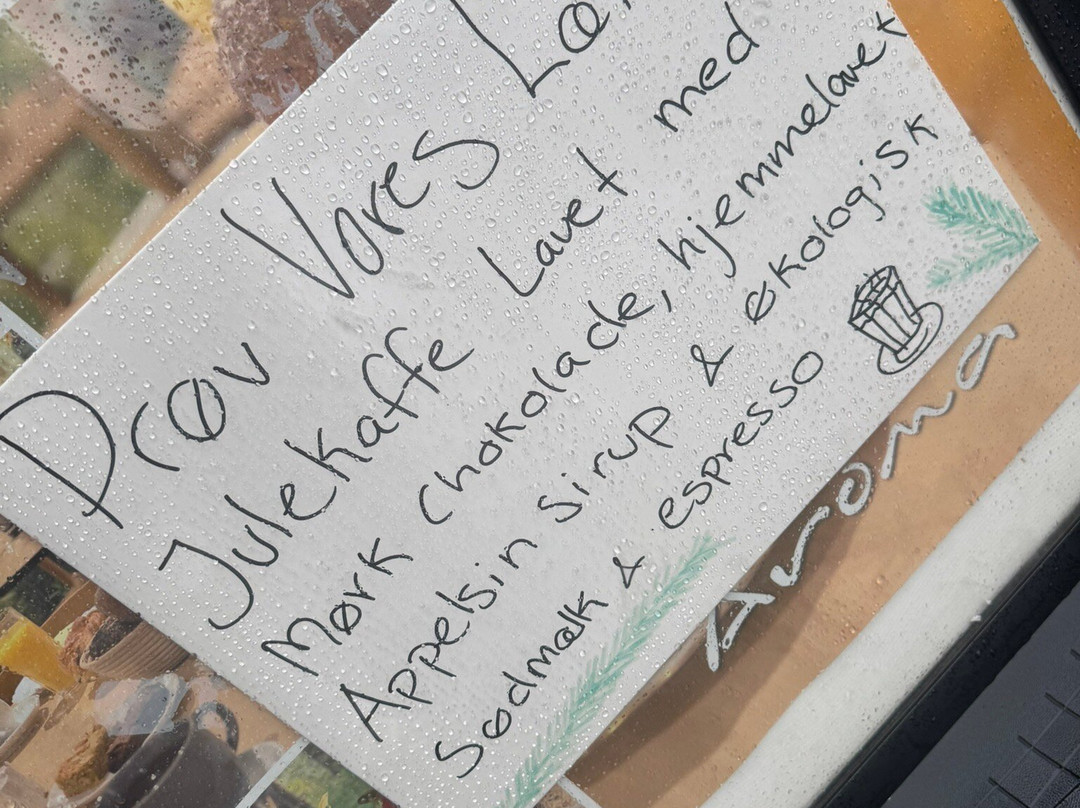 Prøv Vores
Julekaffe Lavet med
Mørk chokolade, hjemmelavet
Appelsin sirup & økologisk
Sødmælk & espresso
Aroma